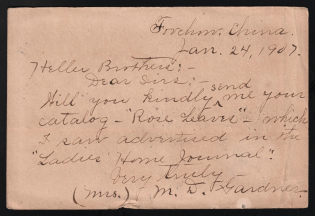 Foochow, China.
Jan. 24, 1907.
Heller Brothers:-
Dear Sirs:-
send
Will you kindly ^ me your
catalog - "Rose Leaves" - which
I saw advertised in the
"Ladies' Home Journal".
Very truly
(Mrs.) M. D. Gardner.